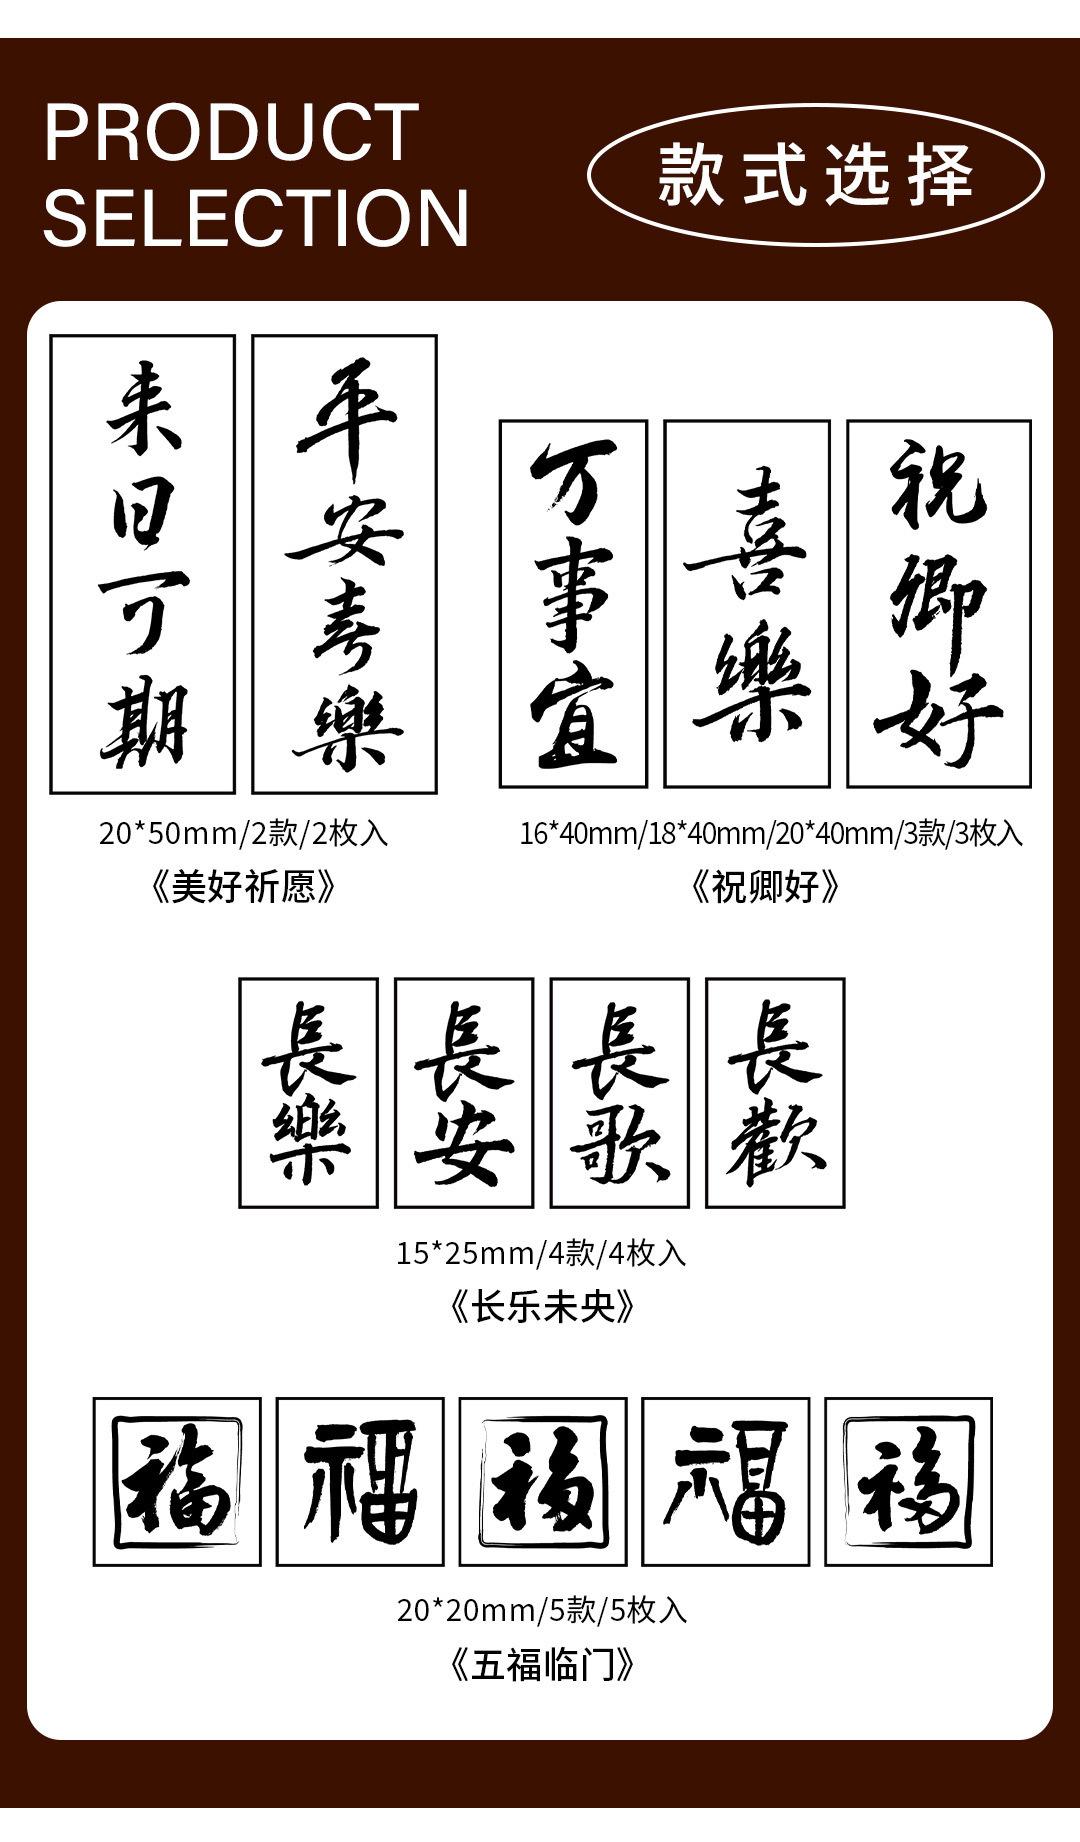 PRODUCT
SELECTION
款式选择
来日可期
平安喜樂
万事宜
喜樂
祝卿好
20*50mm/2款/2枚入
《美好祈愿》
16*40mm/18*40mm/20*40mm/3款/3枚入
《祝卿好》
長樂
長安
長歌
長歡
15*25mm/4款/4枚入
《长乐未央》
福
福
福
福
福
20*20mm/5款/5枚入
《五福临门》